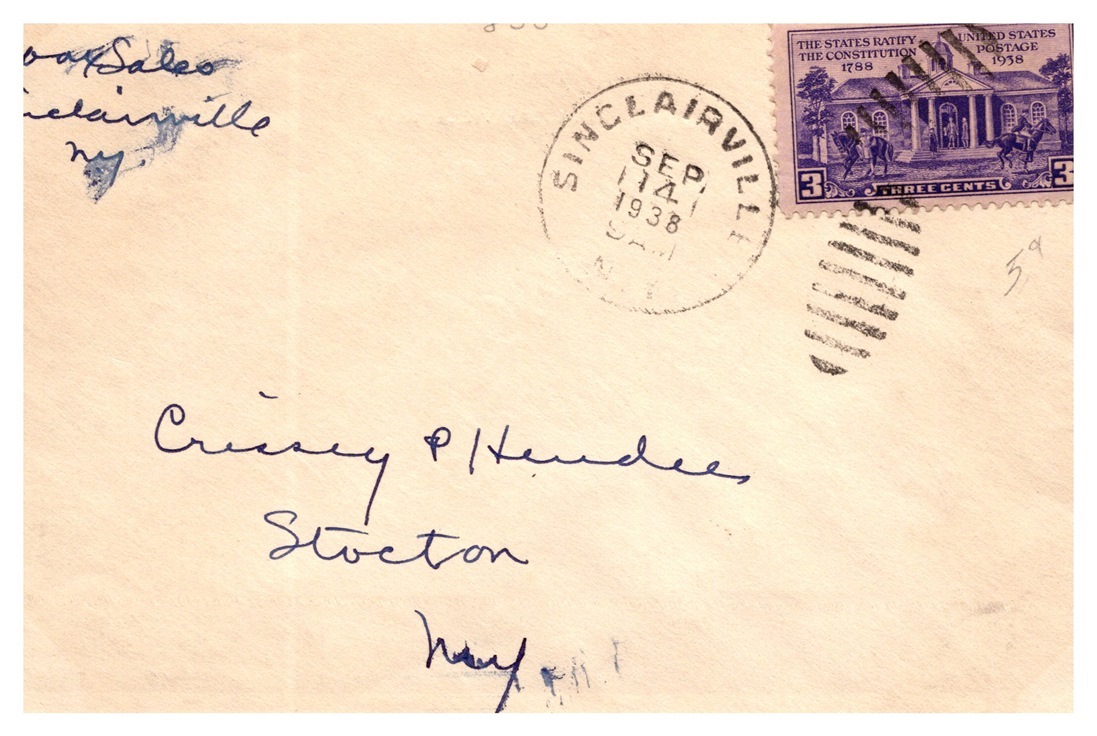 Sales
Sinclairville
Ny.
SINCLAIRVILLE
SEP
14
1938
AM
N.Y.
THE STATES RATIFY
THE CONSTITUTION
1788
UNITED STATES
POSTAGE
1938
3 THREE CENTS 3
5¢
Crissey & Hendees
Stocton
Ny